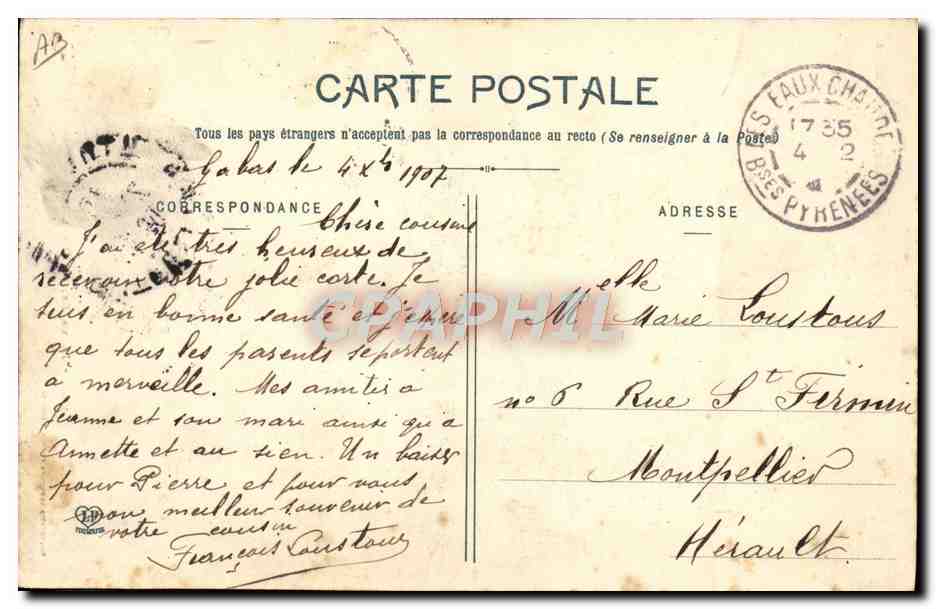 AB
CARTE POSTALE
Tous les pays étrangers n'acceptent pas la correspondance au recto (Se renseigner à la Poste)
LES EAUX CHAUDES
17 35
4 2
Bses PYRÉNÉES
Gabas le 4 Xb 1907
CORRESPONDANCE
Chère cousine
J'ai été très heureux de
recevoir votre jolie carte. Je
suis en bonne santé et j'espère
que tous les parents se portent
a merveille. Mes amitiés a
Jeanne et son mari ainsi qu'a
Annette et au sien. Un baiser
pour Pierre et pour vous
mon meilleur souvenir de
votre cousin
François Loustous
LP
TOULOUSE
ADRESSE
Melle Marie Loustous
no 6 Rue St Firmin
Montpellier
Hérault
CPAPHIL